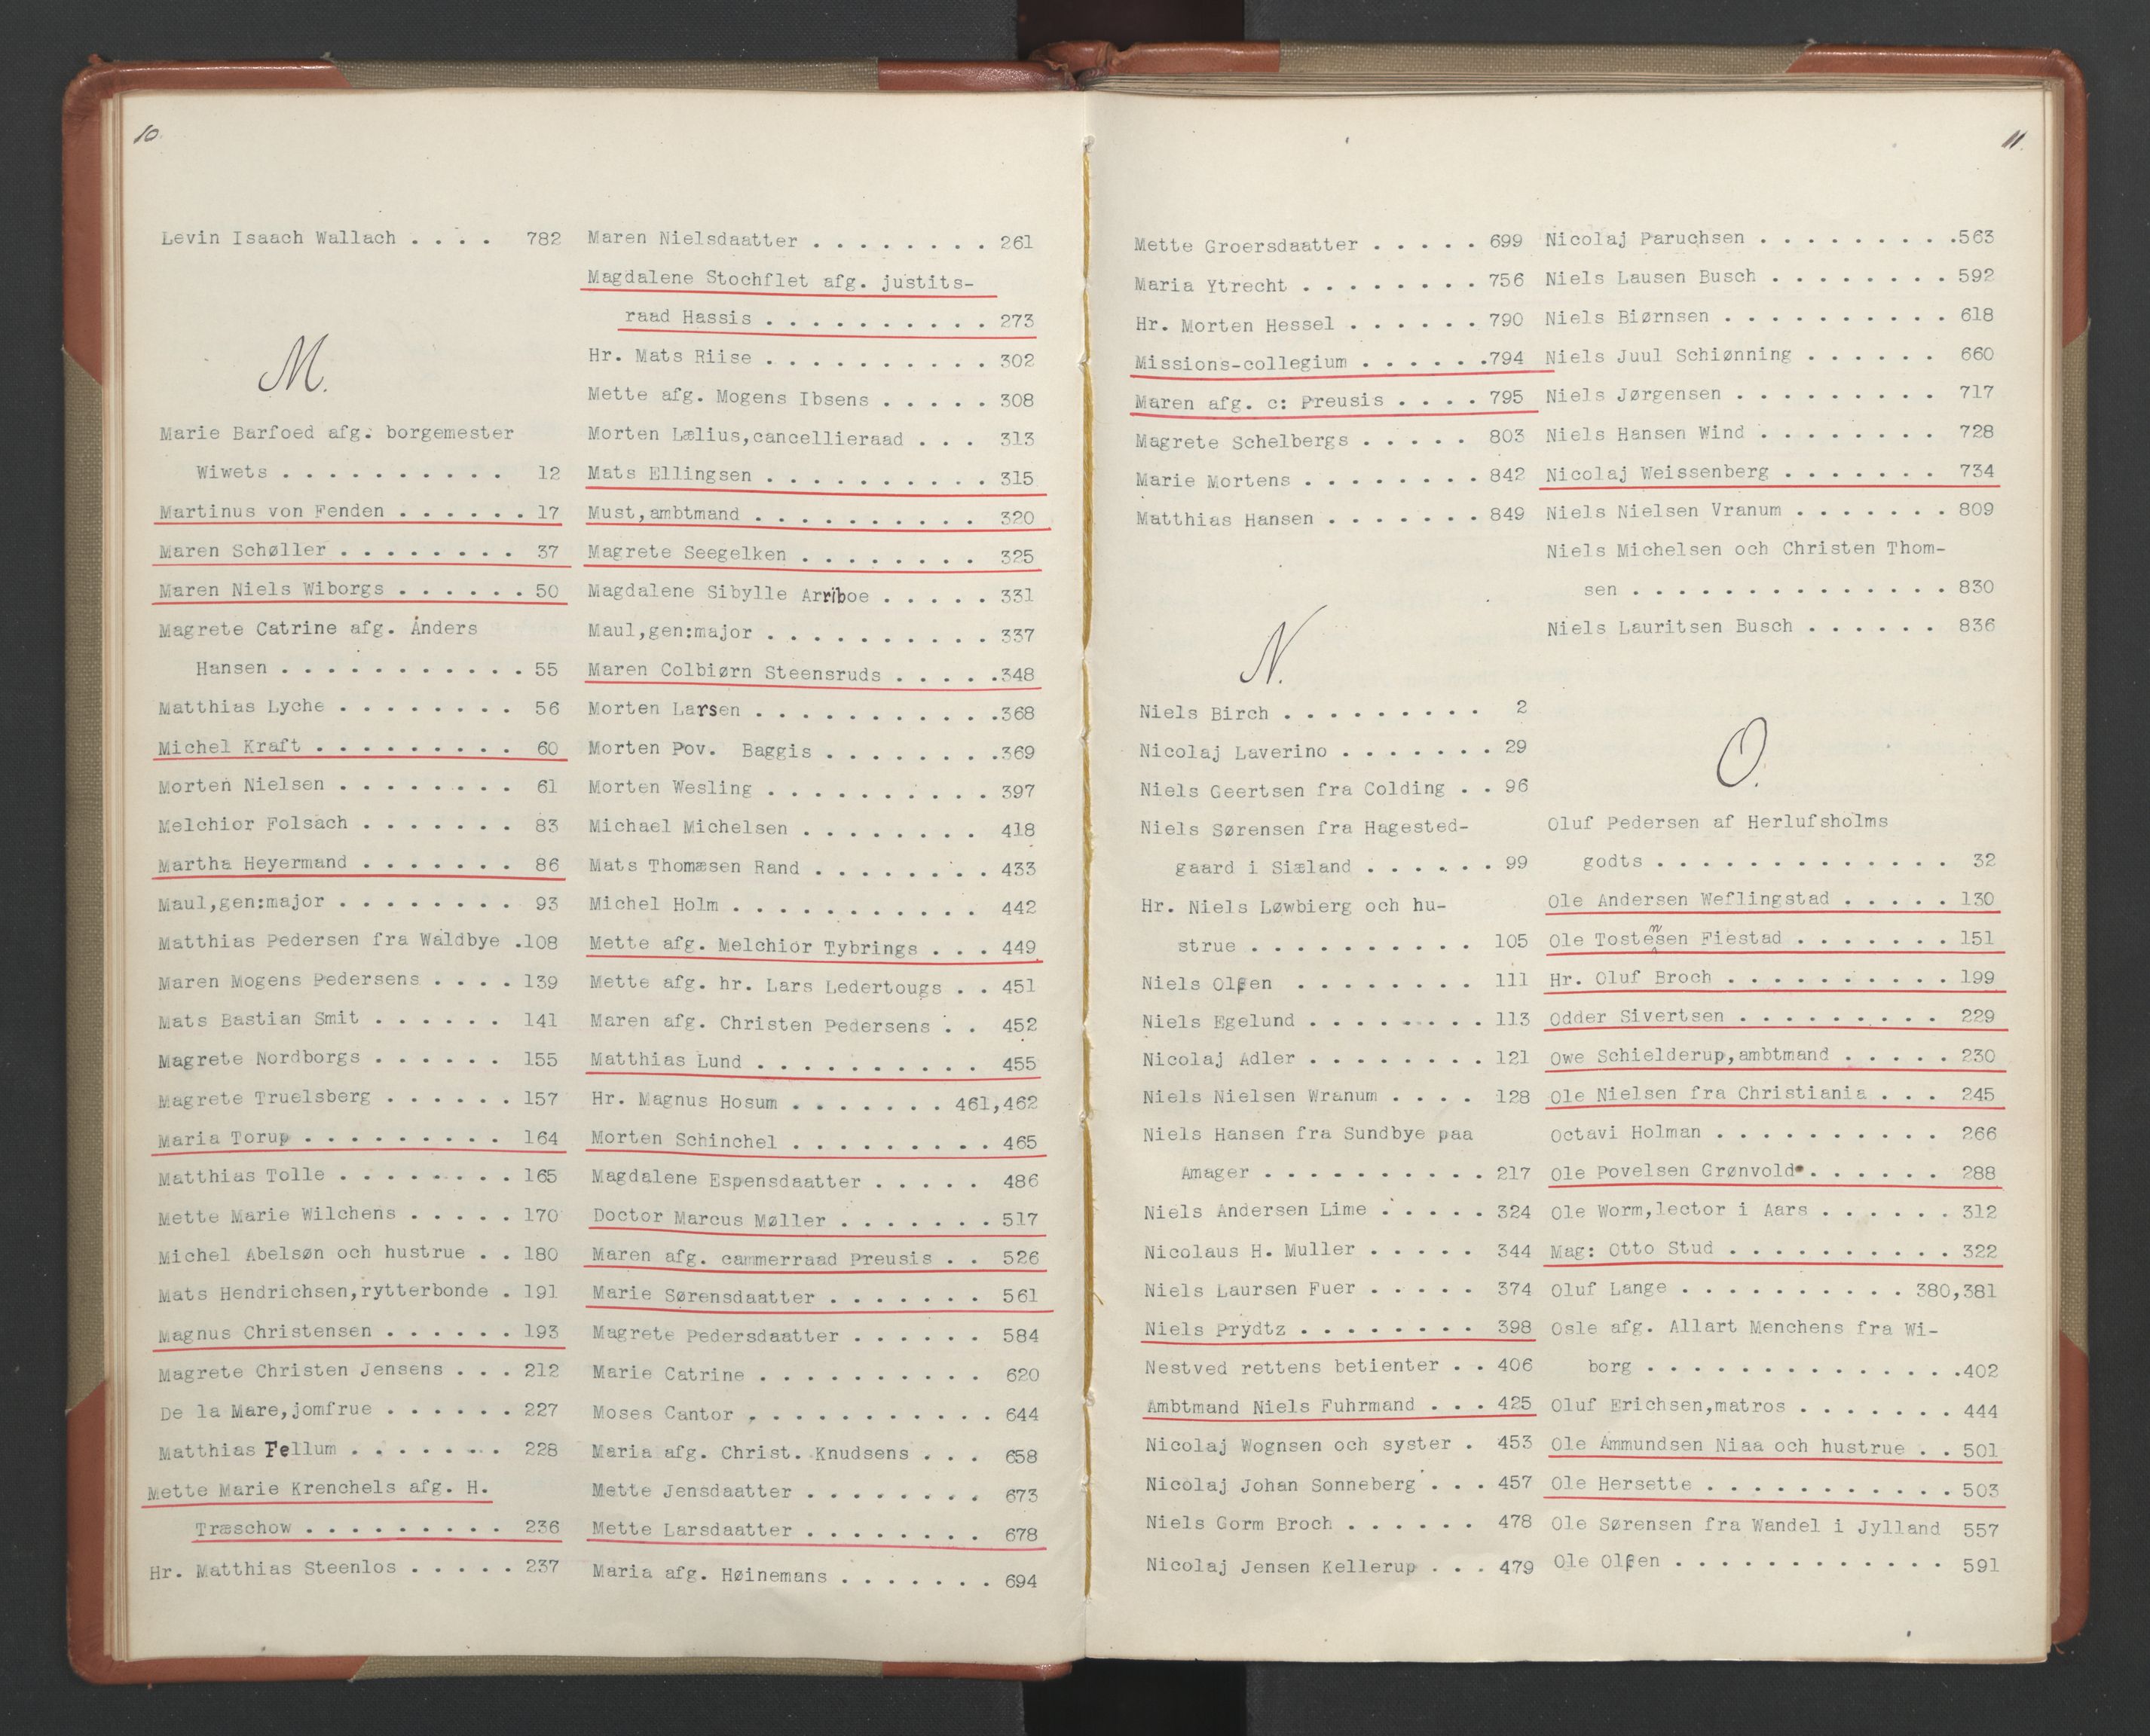 10.
Levin Isaach Wallach . . . . 782
M.
Marie Barfoed afg. borgemester
Wiwets . . . . . . . . . . 12
Martinus von Fenden . . . . . . 17
Maren Schøller . . . . . . . . 37
Maren Niels Wiborgs . . . . . . 50
Magrete Catrine afg. Anders
Hansen . . . . . . . . . . . 55
Matthias Lyche . . . . . . . . 56
Michel Kraft . . . . . . . . . 60
Morten Nielsen . . . . . . . . 61
Melchior Folsach . . . . . . . 83
Martha Heyermand . . . . . . . 86
Maul,gen:major . . . . . . . . 93
Matthias Pedersen fra Waldbye .108
Maren Mogens Pedersens . . . . 139
Mats Bastian Smit . . . . . . 141
Magrete Nordborgs . . . . . . 155
Magrete Truelsberg . . . . . . 157
Maria Torup . . . . . . . . . 164
Matthias Tolle . . . . . . . . 165
Mette Marie Wilchens . . . . . 170
Michel Abelsøn och hustrue . . 180
Mats Hendrichsen,rytterbonde . 191
Magnus Christensen . . . . . . 193
Magrete Christen Jensens . . . 212
De la Mare,jomfrue . . . . . . 227
Matthias Fellum . . . . . . . 228
Mette Marie Krenchels afg. H.
Træschow . . . . . . . . . 236
Hr. Matthias Steenlos . . . . . 237
Maren Nielsdaatter . . . . . . . . 261
Magdalene Stochflet afg. justits-
raad Hassis . . . . . . . . . . 273
Hr. Mats Riise . . . . . . . . . . 302
Mette afg. Mogens Ibsens . . . . . 308
Morten Lælius,cancellieraad . . . 313
Mats Ellingsen . . . . . . . . . . 315
Must,ambtmand . . . . . . . . . . 320
Magrete Seegelken . . . . . . . . 325
Magdalene Sibylle Arriboe . . . . . 331
Maul,gen:major . . . . . . . . . . 337
Maren Colbiørn Steensruds . . . . .348
Morten Larsen . . . . . . . . . . .368
Morten Pov. Baggis . . . . . . . .369
Morten Wesling . . . . . . . . . . 397
Michael Michelsen . . . . . . . . 418
Mats Thomæsen Rand . . . . . . . . 433
Michel Holm . . . . . . . . . . . 442
Mette afg. Melchior Tybrings . . . 449
Mette afg. hr. Lars Ledertougs . . 451
Maren afg. Christen Pedersens . . 452
Matthias Lund . . . . . . . . . . 455
Hr. Magnus Hosum . . . . . . . 461,462
Morten Schinchel . . . . . . . . . 465
Magdalene Espensdaatter . . . . . 486
Doctor Marcus Møller . . . . . . . 517
Maren afg. cammerraad Preusis . . 526
Marie Sørensdaatter . . . . . . . 561
Magrete Pedersdaatter . . . . . . 584
Marie Catrine . . . . . . . . . . 620
Moses Cantor . . . . . . . . . . . 644
Maria afg. Christ. Knudsens . . . 658
Mette Jensdaatter . . . . . . . . 673
Mette Larsdaatter . . . . . . . . 678
Maria afg. Høinemans . . . . . . . 694
11.
Mette Groersdaatter . . . . . 699
Maria Ytrecht . . . . . . . . 756
Hr. Morten Hessel . . . . . . 790
Missions-collegium . . . . . .794
Maren afg. c: Preusis . . . . 795
Magrete Schelbergs . . . . . 803
Marie Mortens . . . . . . . . 842
Matthias Hansen . . . . . . . 849
N.
Niels Birch . . . . . . . . . 2
Nicolaj Laverino . . . . . . . 29
Niels Geertsen fra Colding . . 96
Niels Sørensen fra Hagested-
gaard i Siæland . . . . . . 99
Hr. Niels Løwbierg och hu-
strue . . . . . . . . . . 105
Niels Olßen . . . . . . . . 111
Niels Egelund . . . . . . . . 113
Nicolaj Adler . . . . . . . . 121
Niels Nielsen Wranum . . . . 128
Niels Hansen fra Sundbye paa
Amager . . . . . . . . . . 217
Niels Andersen Lime . . . . . 324
Nicolaus H. Muller . . . . . 344
Niels Laursen Fuer . . . . . 374
Niels Prydtz . . . . . . . . 398
Nestved rettens betienter . . 406
Ambtmand Niels Fuhrmand . . . 425
Nicolaj Wognsen och syster . 453
Nicolaj Johan Sonneberg . . . 457
Niels Gorm Broch . . . . . . 478
Nicolaj Jensen Kellerup . . . 479
Nicolaj Paruchsen . . . . . . . . .563
Niels Lausen Busch . . . . . . . . 592
Niels Biørnsen . . . . . . . . . . 618
Niels Juul Schiønning . . . . . . 660
Niels Jørgensen . . . . . . . . . 717
Niels Hansen Wind . . . . . . . . 728
Nicolaj Weissenberg . . . . . . . 734
Niels Nielsen Vranum . . . . . . . 809
Niels Michelsen och Christen Thom-
sen . . . . . . . . . . . . . . 830
Niels Lauritsen Busch . . . . . . 836
O.
Oluf Pedersen af Herlufsholms
godts . . . . . . . . . . . . . 32
Ole Andersen Weflingstad . . . . . 130
Ole Tostensen Fiestad . . . . . . . 151
Hr. Oluf Broch . . . . . . . . . . 199
Odder Sivertsen . . . . . . . . . 229
Owe Schielderup,ambtmand . . . . . 230
Ole Nielsen fra Christiania . . . 245
Octavi Holman . . . . . . . . . . 266
Ole Povelsen Grønvold . . . . . . 288
Ole Worm,lector i Aars . . . . . . 312
Mag: Otto Stud . . . . . . . . . . 322
Oluf Lange . . . . . . . . . . 380,381
Osle afg. Allart Menchens fra Wi-
borg . . . . . . . . . . . . . .402
Oluf Erichsen,matros . . . . . . . 444
Ole Ammundsen Niaa och hustrue . . 501
Ole Hersette . . . . . . . . . . . 503
Ole Sørensen fra Wandel i Jylland 557
Ole Olßen . . . . . . . . . . . . 591